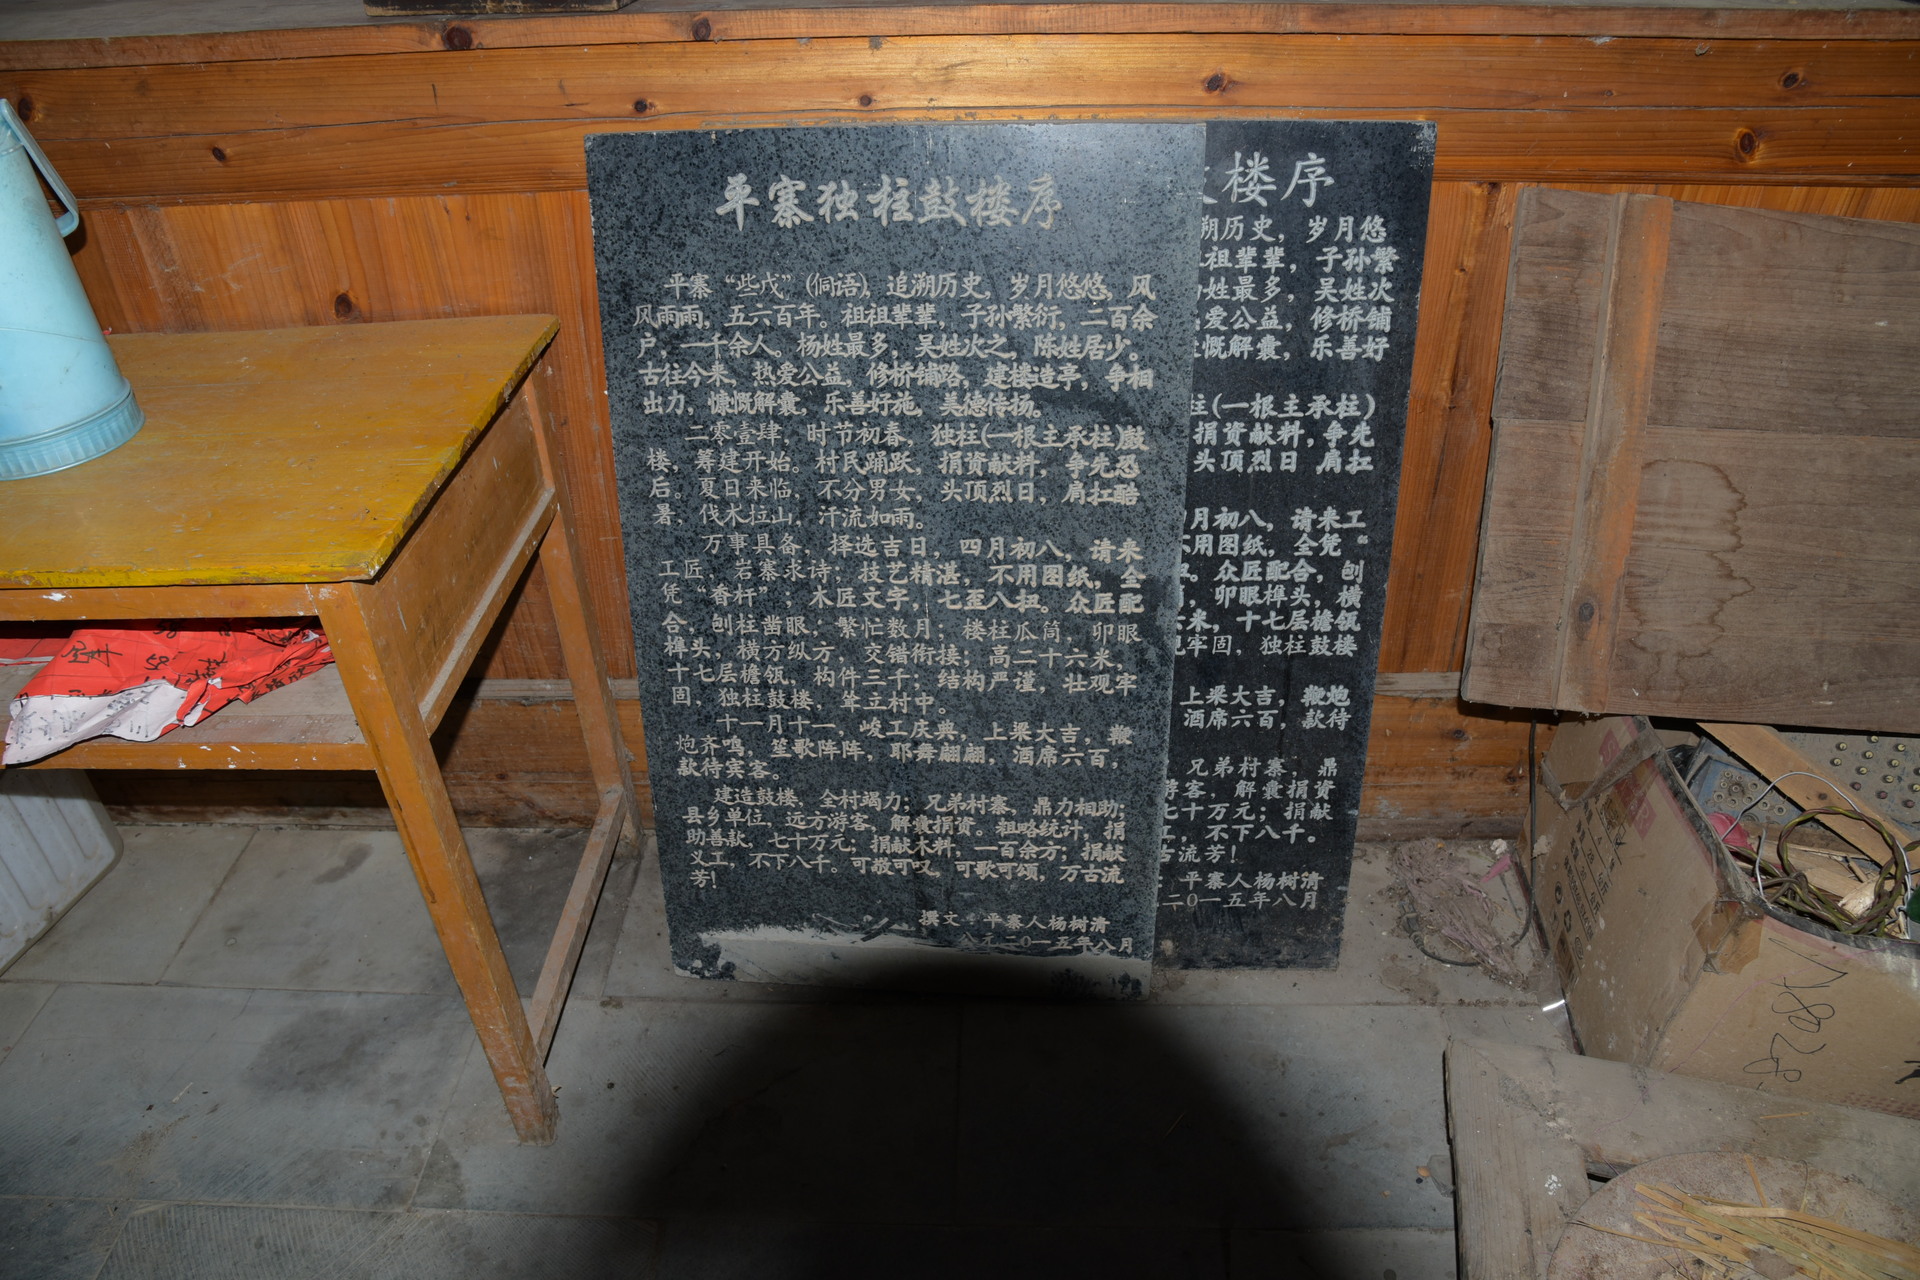 平寨独柱鼓楼序
平寨“些戊”(侗语), 追溯历史, 岁月悠悠, 风
风雨雨, 五六百年。祖祖辈辈, 子孙繁衍, 二百余
户, 一千余人。杨姓最多, 吴姓次之, 陈姓居少。
古往今来, 热爱公益, 修桥铺路, 建楼造亭, 争相
出力, 慷慨解囊, 乐善好施, 美德传扬。
二零壹肆, 时节初春, 独柱(一根主承柱)鼓
楼, 筹建开始。村民踊跃, 捐资献料, 争先恐
后。夏日来临, 不分男女, 头顶烈日, 肩扛酷
暑, 伐木拉山, 汗流如雨。
万事具备, 择选吉日, 四月初八, 请来
工匠, 岩寨求诗; 技艺精湛, 不用图纸, 全
凭“香杆”; 木匠文字, 七歪八扭。众匠配
合, 刨柱凿眼; 繁忙数月; 楼柱瓜筒, 卯眼
榫头, 横方纵方, 交错衔接; 高二十六米,
十七层檐瓴, 构件三千; 结构严谨, 壮观牢
固, 独柱鼓楼, 耸立村中。
十一月十一, 峻工庆典, 上梁大吉, 鞭
炮齐鸣, 笙歌阵阵, 耶舞翩翩, 酒席六百,
款待宾客。
建造鼓楼, 全村竭力; 兄弟村寨, 鼎力相助;
县乡单位, 远方游客, 解囊捐资。粗略统计, 捐
助善款, 七十万元; 捐献木料, 一百余方; 捐献
义工, 不下八千。可敬可叹, 可歌可颂, 万古流
芳!
撰文: 平寨人杨树清
公元二0一五年八月
楼序
溯历史, 岁月悠
祖辈辈, 子孙繁
姓最多, 吴姓次
爱公益, 修桥铺
慨解囊, 乐善好
柱(一根主承柱)
捐资献料, 争先
头顶烈日 肩扛
月初八, 请来工
用图纸, 全凭“
。众匠配合, 刨
, 卯眼榫头, 横
米, 十七层檐瓴
牢固, 独柱鼓楼
上梁大吉, 鞭炮
酒席六百, 款待
兄弟村寨, 鼎
游客, 解囊捐资
七十万元; 捐献
工, 不下八千。
古流芳!
平寨人杨树清
二0一五年八月